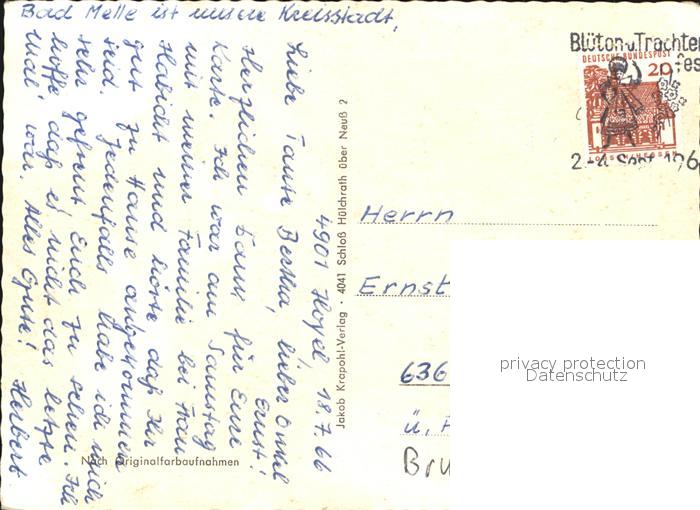 Bad Melle ist unsere Kreisstadt.
4901 18.7.66
Liebe Tante Bertha, lieber Onkel
Ernst!
Herzlichen Dank für Eure
Karte. Ich war am Samstag
mit meiner Familie bei Frau
Habicht und hörte daß Ihr
gut zu Hause angekommen
seid. Jedenfalls habe ich mich
sehr gefreut Euch zu sehen. Ich
hoffe daß es nicht das letzte
mal war. Alles Gute! Herbert
Nach Originalfarbaufnahmen
Jakob Krapohl-Verlag · 4041 Schloß Hülchrath über Neuß 2
Blüten- u. Trachten
fes
DEUTSCHE BUNDESPOST
20
2.-4. Sept. 196
Herrn
Ernst
636
ü. F
Bru
privacy protection
Datenschutz